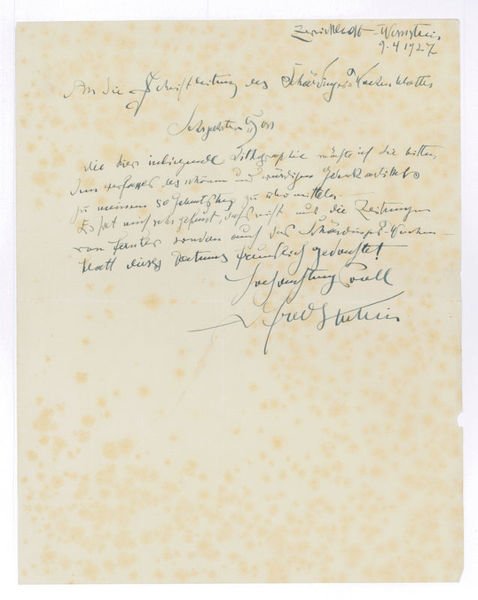 Zwickledt-Wernstein
9.4 1927
An die Schriftleitung des Schärdinger Wochenblattes
die hier inliegende Lithographie möchte ich Sie bitten,
dem Verfasser des schönen und würdigen Gedenkartikels
zu meinem 50 Geburtstag zu übermitteln.
Es hat mich sehr gefreut, dass nicht nur die Zeitungen
von sondern auch das Schärdinger-Wochen-
blatt dieses Datums freundlich gedachte!
Hochachtungsvoll
Alfred Kubin